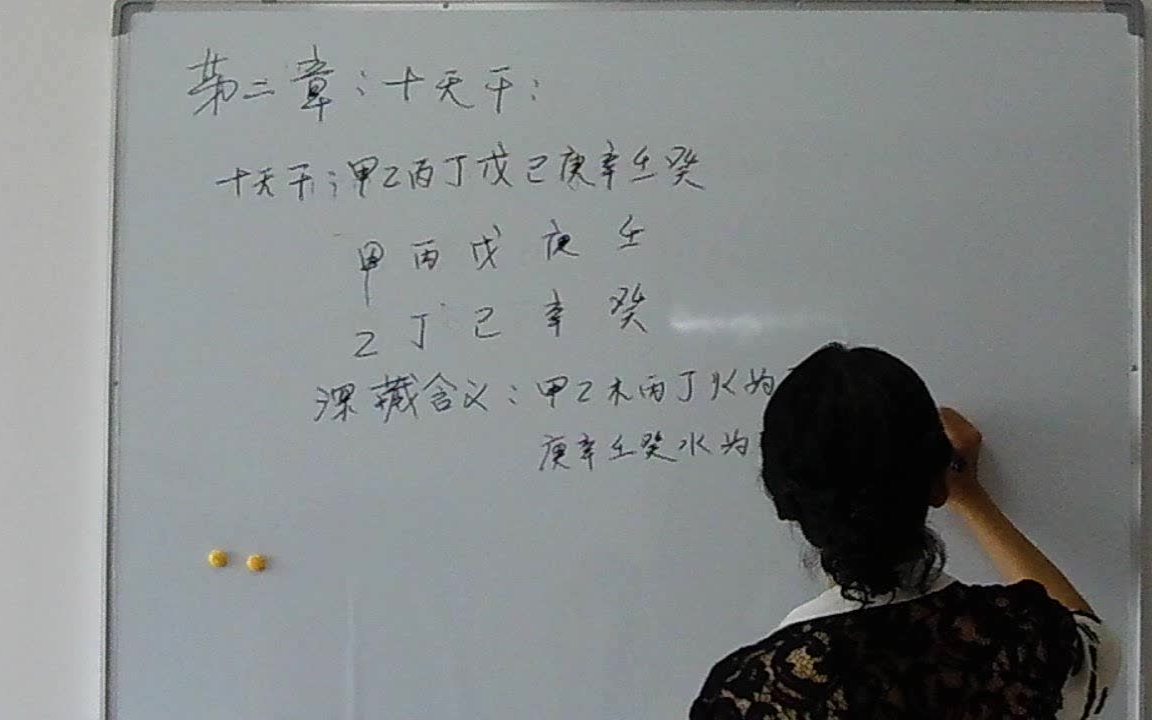 第二章：十天干：
十天干：甲乙丙丁戊己庚辛壬癸
甲 丙 戊 庚 壬
乙 丁 己 辛 癸
深藏含义：甲乙木丙丁火为
庚辛壬癸水为